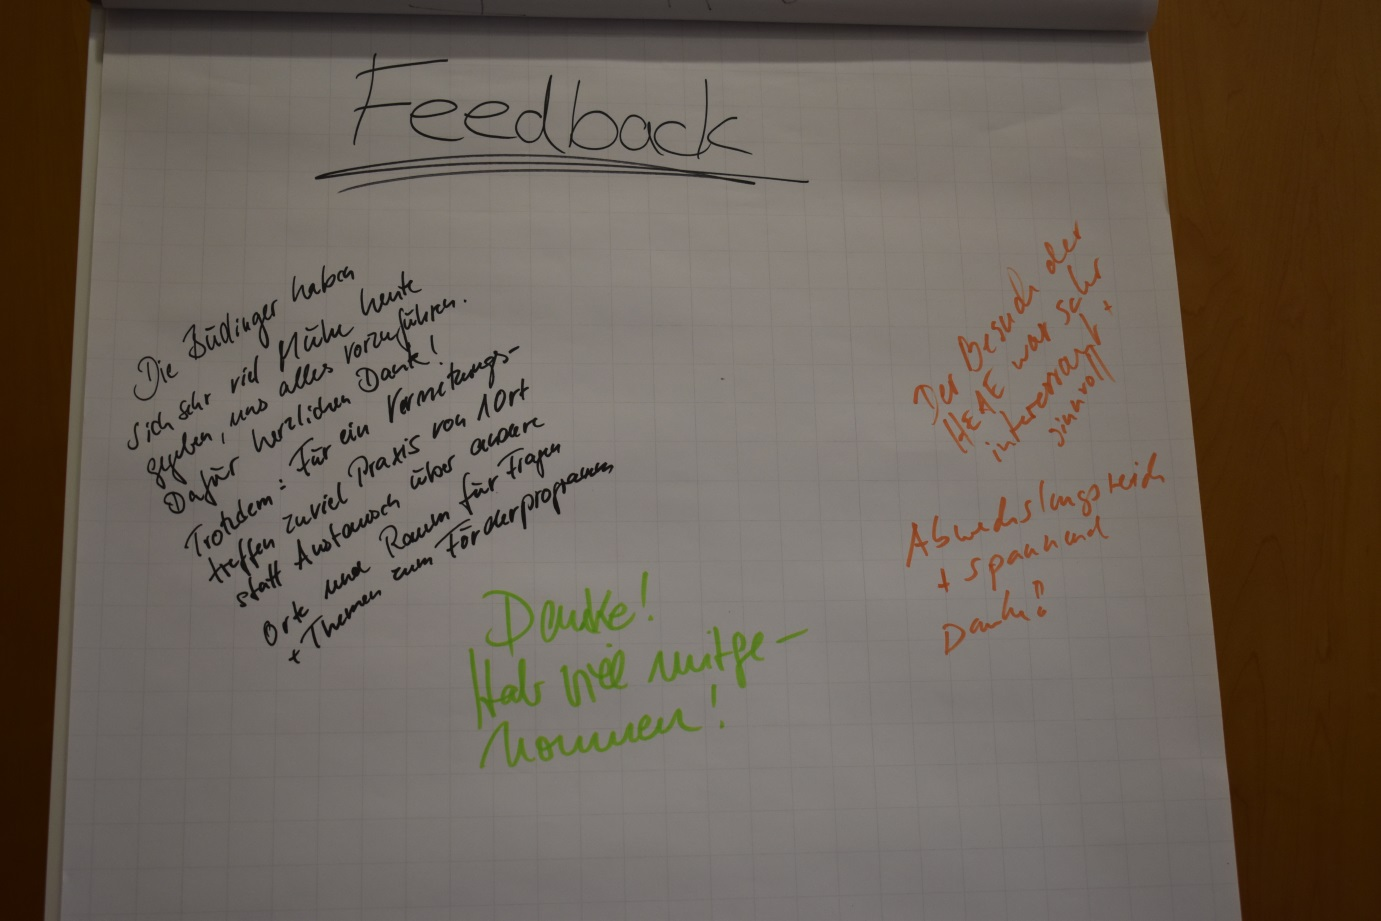 Feedback
Die Büdinger haben
sich sehr viel Mühe heute
gegeben, uns alles vorzuführen.
Dafür herzlichen Dank!
Trotzdem: Für ein Vernetzungs-
treffen zuviel Praxis von 1 Ort
statt Austausch über andere
Orte und Raum für Fragen
+ Themen zum Förderprogramm
Danke!
Hab viel mitge-
nommen!
Der Besuch der
HEAE war sehr
interessant +
sinnvoll
Abwechslungsreich
+ spannend
Danke!!